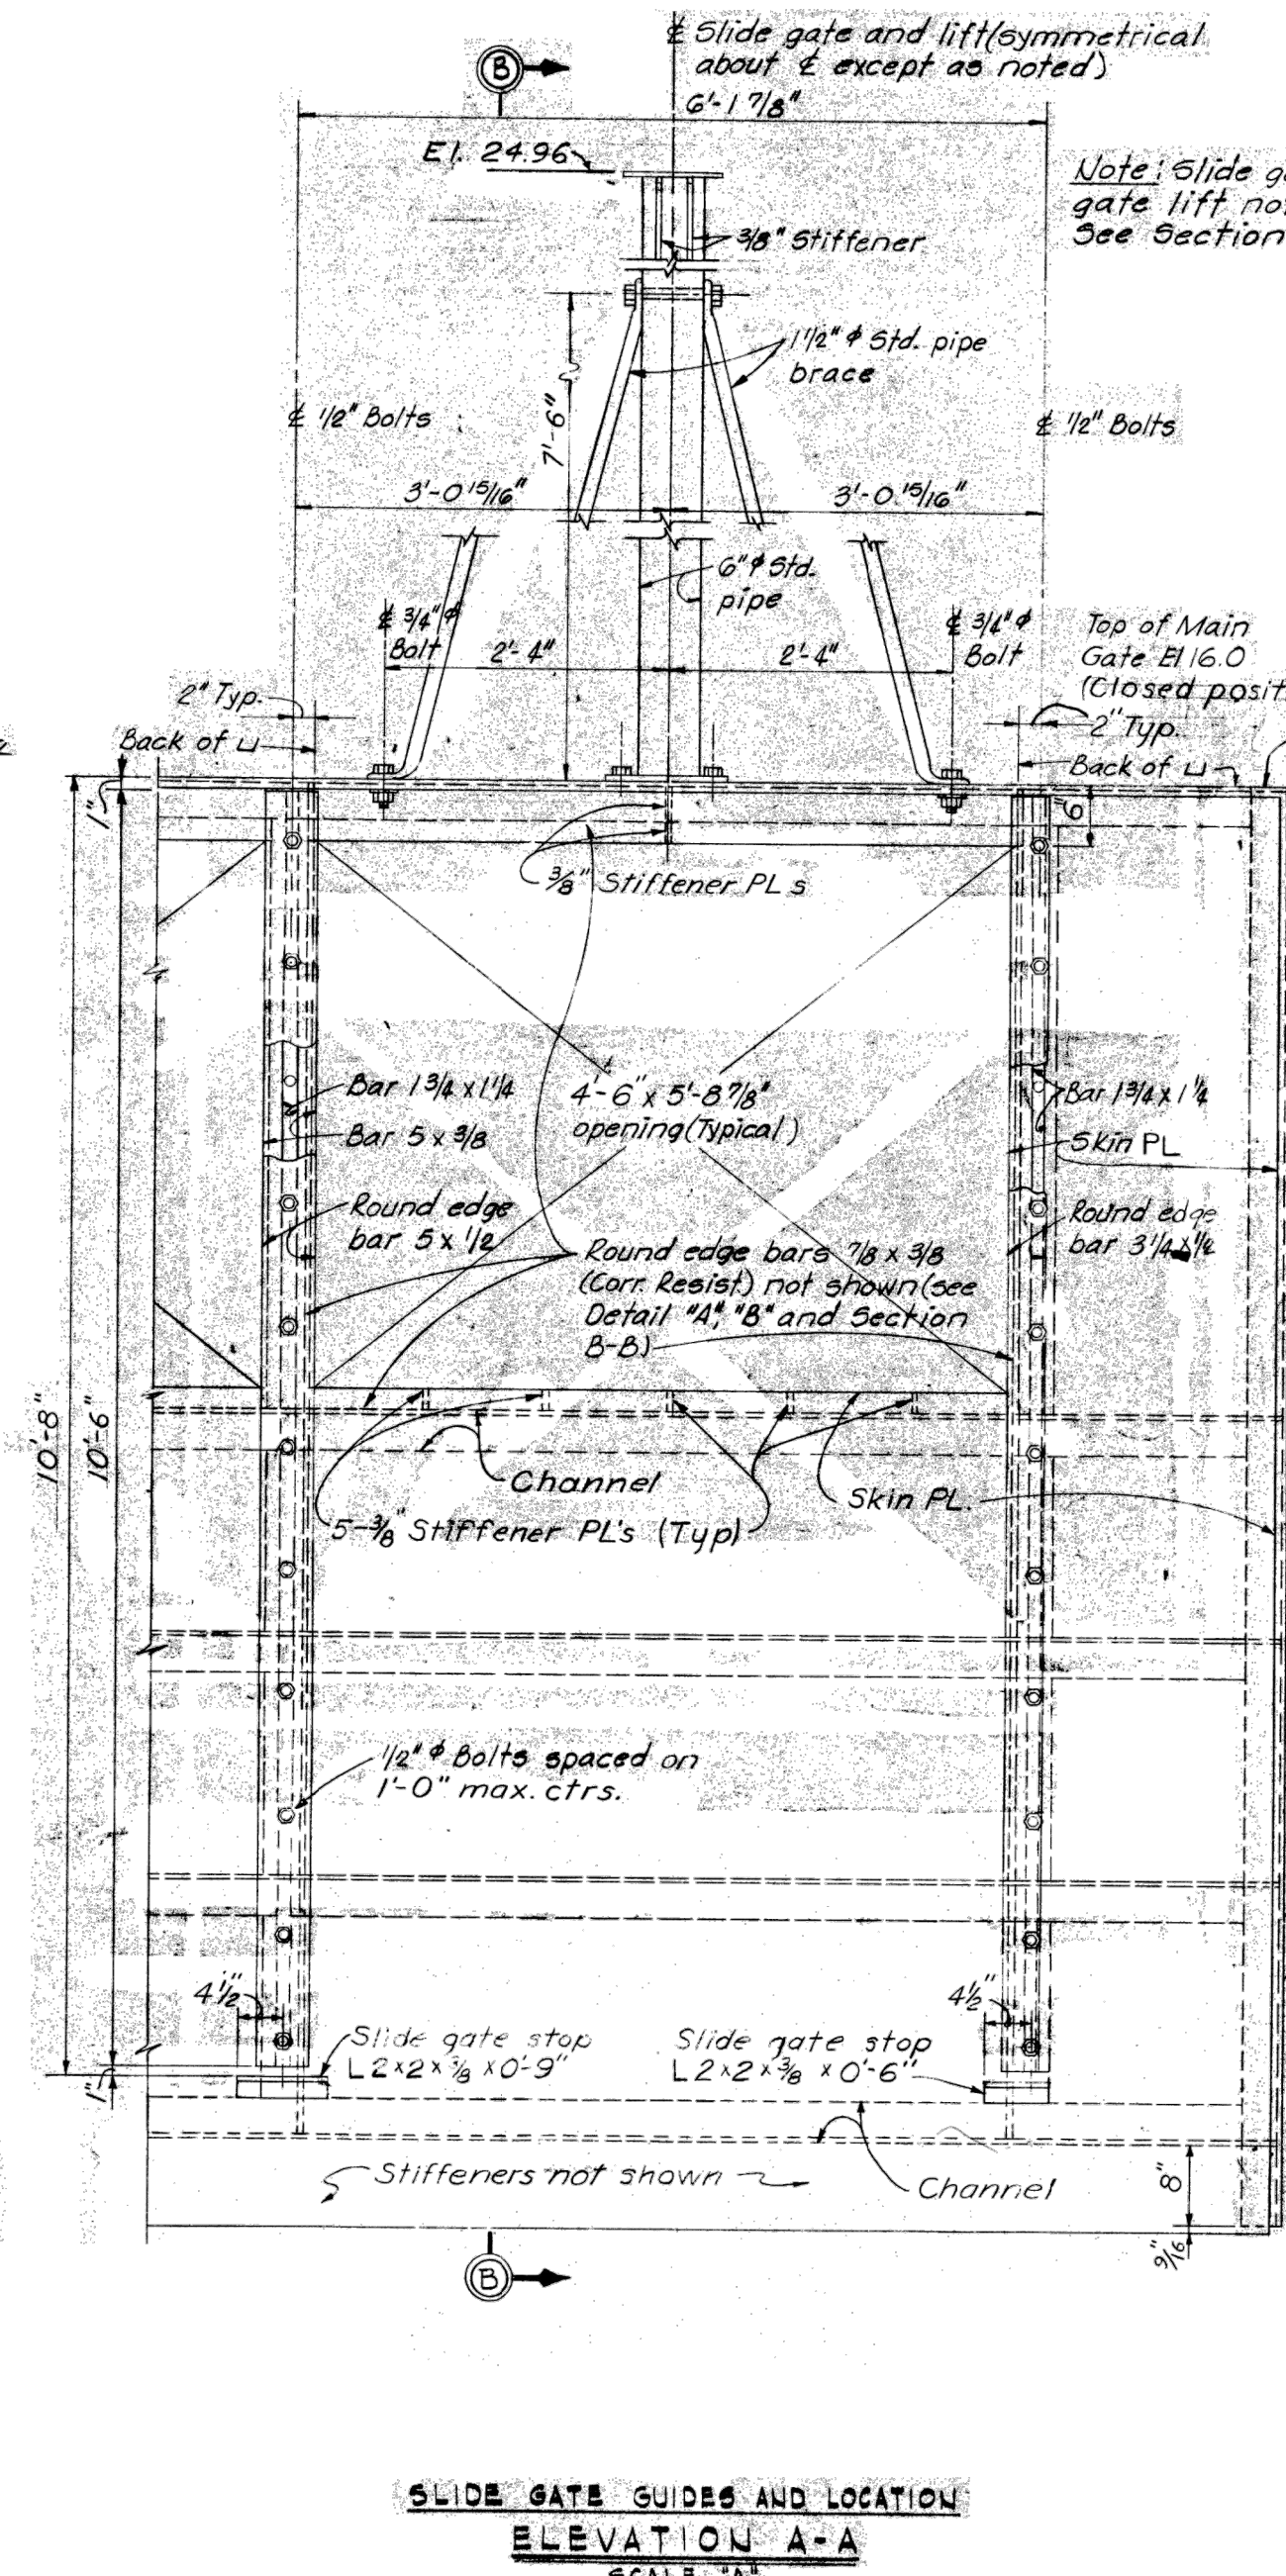 ℄ Slide gate and lift (symmetrical
about ℄ except as noted)
B
6'-1 7/8"
El. 24.96
Note: Slide
gate lift
See Section
3/8" Stiffener
1 1/2" ϕ Std. pipe
brace
℄ 1/2" Bolts
℄ 1/2" Bolts
7'-6"
3'-0 15/16"
3'-0 15/16"
6" ϕ Std.
pipe
℄ 3/4" ϕ
Bolt
2'-4"
2'-4"
℄ 3/4" ϕ
Bolt
Top of Main
Gate El 16.0
(Closed posit
2" Typ.
2" Typ.
Back of ⊔
Back of ⊔
1"
6"
3/8" Stiffener PL s
Bar 1 3/4 x 1 1/4
Bar 5 x 3/8
4'-6" x 5'-8 7/8"
opening (Typical)
Bar 1 3/4 x 1 1/4
Skin PL
Round edge
bar 5 x 1/2
Round edge
bar 3 1/4 x
Round edge bars 7/8 x 3/8
(Corr. Resist.) not shown (see
Detail "A", "B" and Section
B-B)
10'-8"
10'-6"
Channel
Skin PL.
5-3/8" Stiffener PL's (Typ)
1/2" ϕ Bolts spaced on
1'-0" max. ctrs.
4 1/2"
4 1/2"
Slide gate stop
L 2 x 2 x 3/8 x 0'-9"
Slide gate stop
L 2 x 2 x 3/8 x 0'-6"
1"
Stiffeners not shown
Channel
8"
9/16"
B
SLIDE GATE GUIDES AND LOCATION
ELEVATION A-A
SCALE "A"